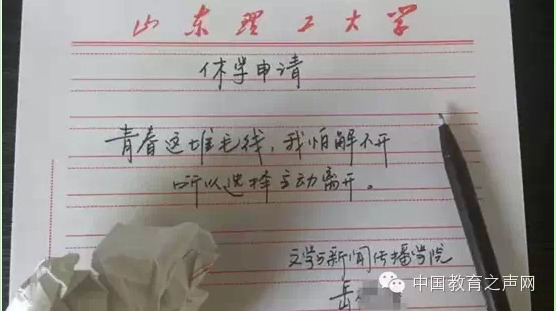 山东理工大学
休学申请
青春这堆毛线，我怕解不开
所以选择主动离开。
文学与新闻传播学院
岳
中国教育之声网